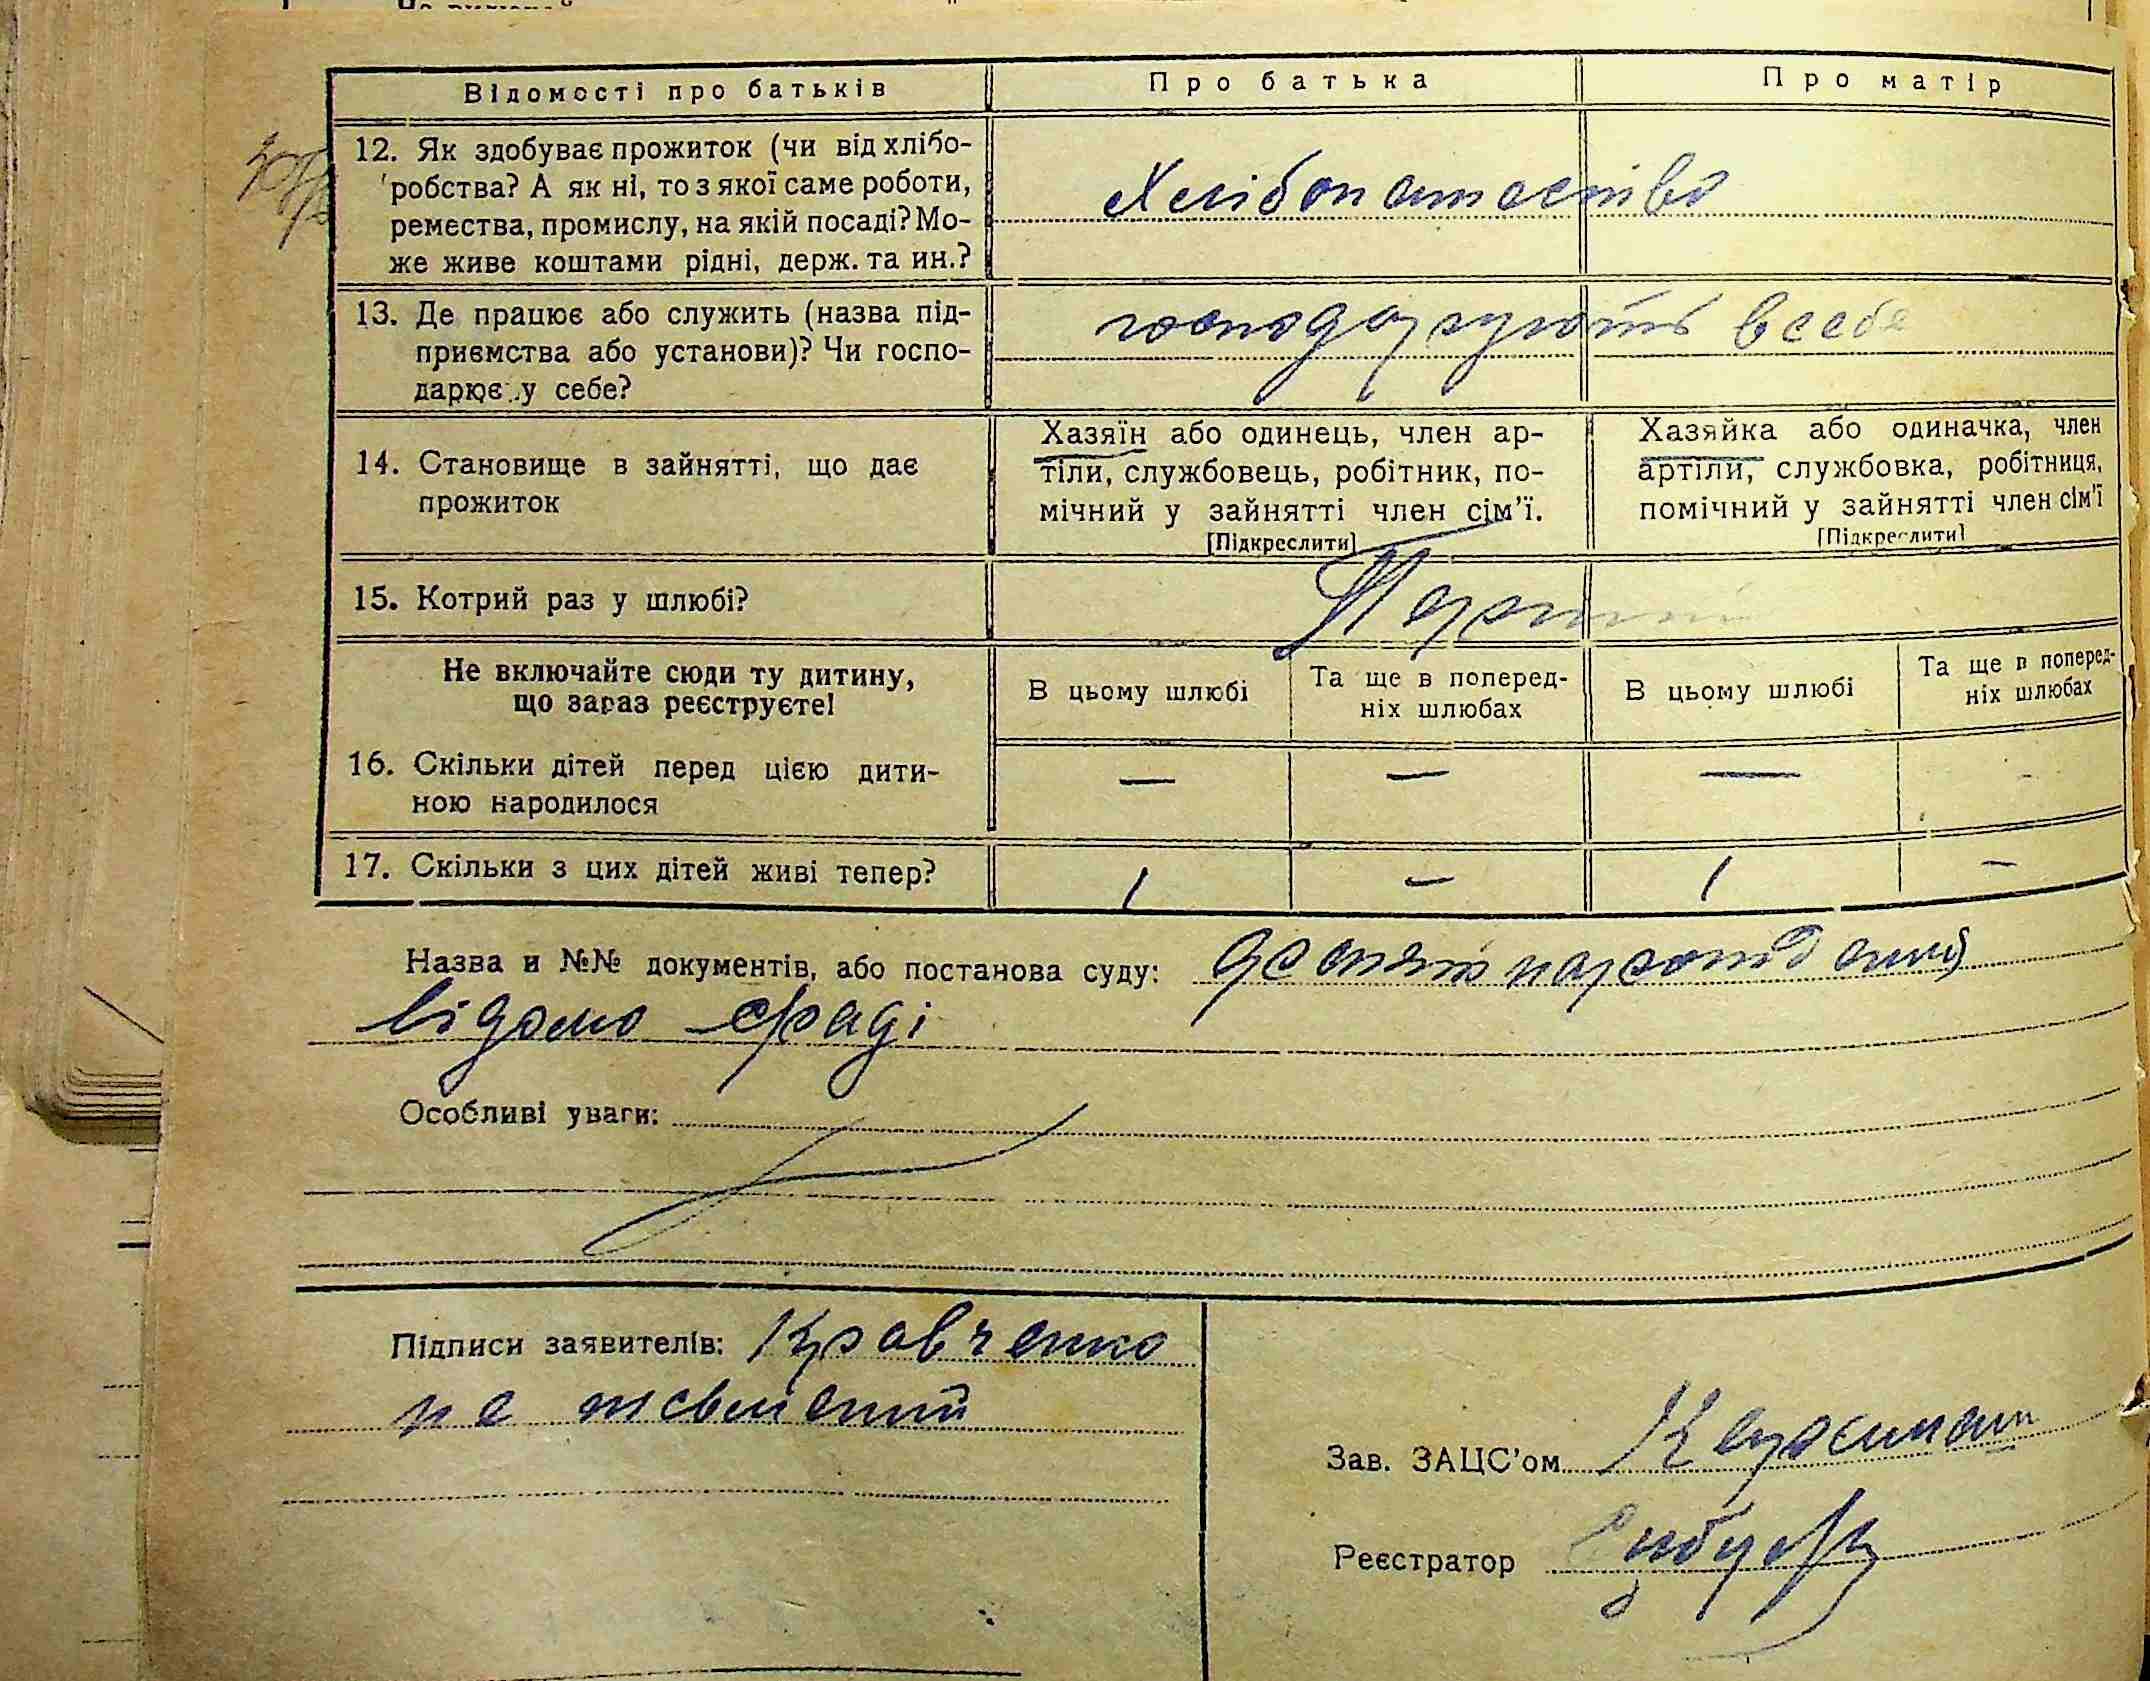 Відомості про батьків
Про батька
Про матір
12. Як здобуває прожиток (чи від хлібо-
робства? А як ні, то з якої саме роботи,
ремества, промислу, на якій посаді? Мо-
же живе коштами рідні, держ. та ин.?
Хлібопашество
13. Де працює або служить (назва під-
приємства або установи)? Чи госпо-
дарює у себе?
господарують в себе
14. Становище в зайнятті, що дає
прожиток
Хазяїн або одинець, член ар-
тіли, службовець, робітник, по-
мічний у зайнятті член сім'ї.
[Підкреслити]
Хазяйка або одиначка, член
артіли, службовка, робітниця,
помічний у зайнятті член сім'ї
[Підкреслити]
15. Котрий раз у шлюбі?
Не включайте сюди ту дитину,
що зараз реєструєте!
В цьому шлюбі
Та ще в поперед-
ніх шлюбах
В цьому шлюбі
Та ще в поперед-
ніх шлюбах
16. Скільки дітей перед цією дити-
ною народилося
— — — -
17. Скільки з цих дітей живі тепер?
1 — 1 —
Назва и №№ документів, або постанова суду:
відомо сраді
Особливі уваги:
Підписи заявителів: Кравченко
не письмений
Зав. ЗАЦС'ом
Реєстратор